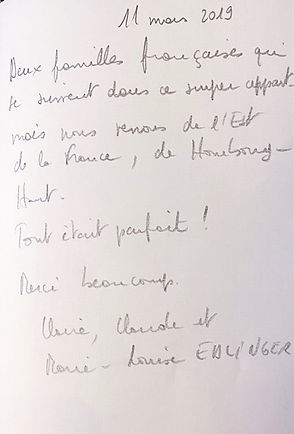 11 mars 2019
Deux familles françaises qui
se suivent dans ce super appart-
mais nous venons de l'Est
de la France, de Hombourg-
Haut.
Tout était parfait !
Merci beaucoup.
Claire, Claude et
Marie-Louise EBLINGER